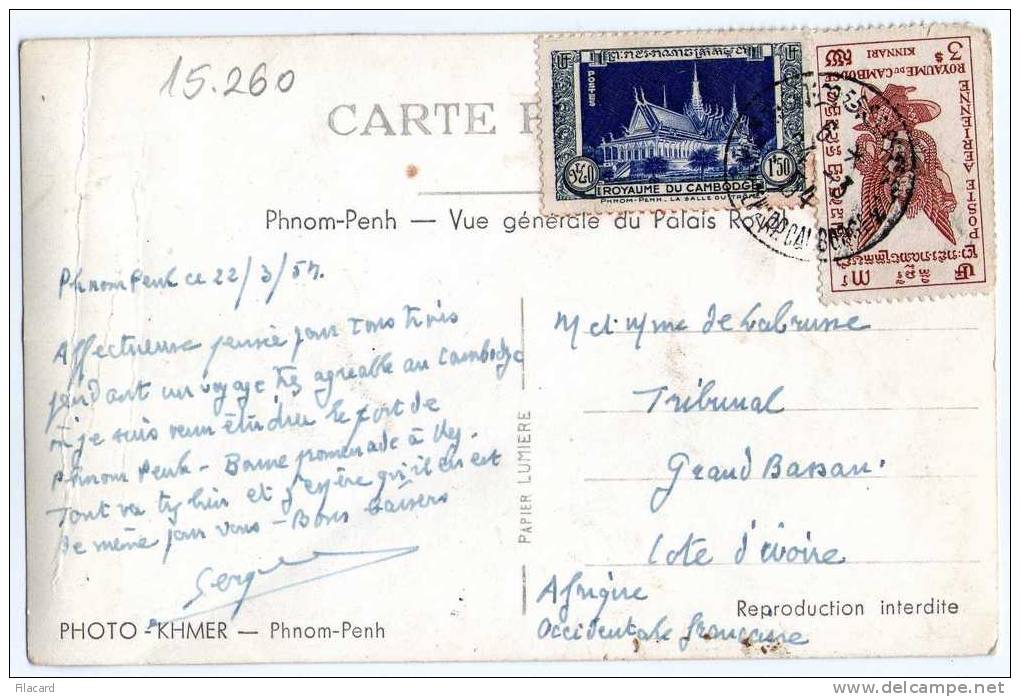 15.260
CARTE
POSTES
1$50
ROYAUME DU CAMBODGE
PHNOM-PENH. LA SALLE DU TRÔNE
3$
ROYAUME DU CAMBODGE
KINNARI
POSTE AERIENNE
Phnom-Penh — Vue générale du Palais Ro
Phnom Penh ce 22/3/57.
Affectueuse pensée pour tous trois
pendant un voyage très agréable au Cambodge
où je suis venu étudier le port de
Phnom Penh - Bonne promenade à
Tout va très bien et j'espère qu'il en est
de même pour vous - Bons baisers
Serge
M et Mme de Labrusse
Tribunal
Grand Bassam
Cote d'ivoire
Afrique
Occidentale française
PAPIER LUMIERE
PHOTO-KHMER — Phnom-Penh
Reproduction interdite
Filacard
www.delcampe.net